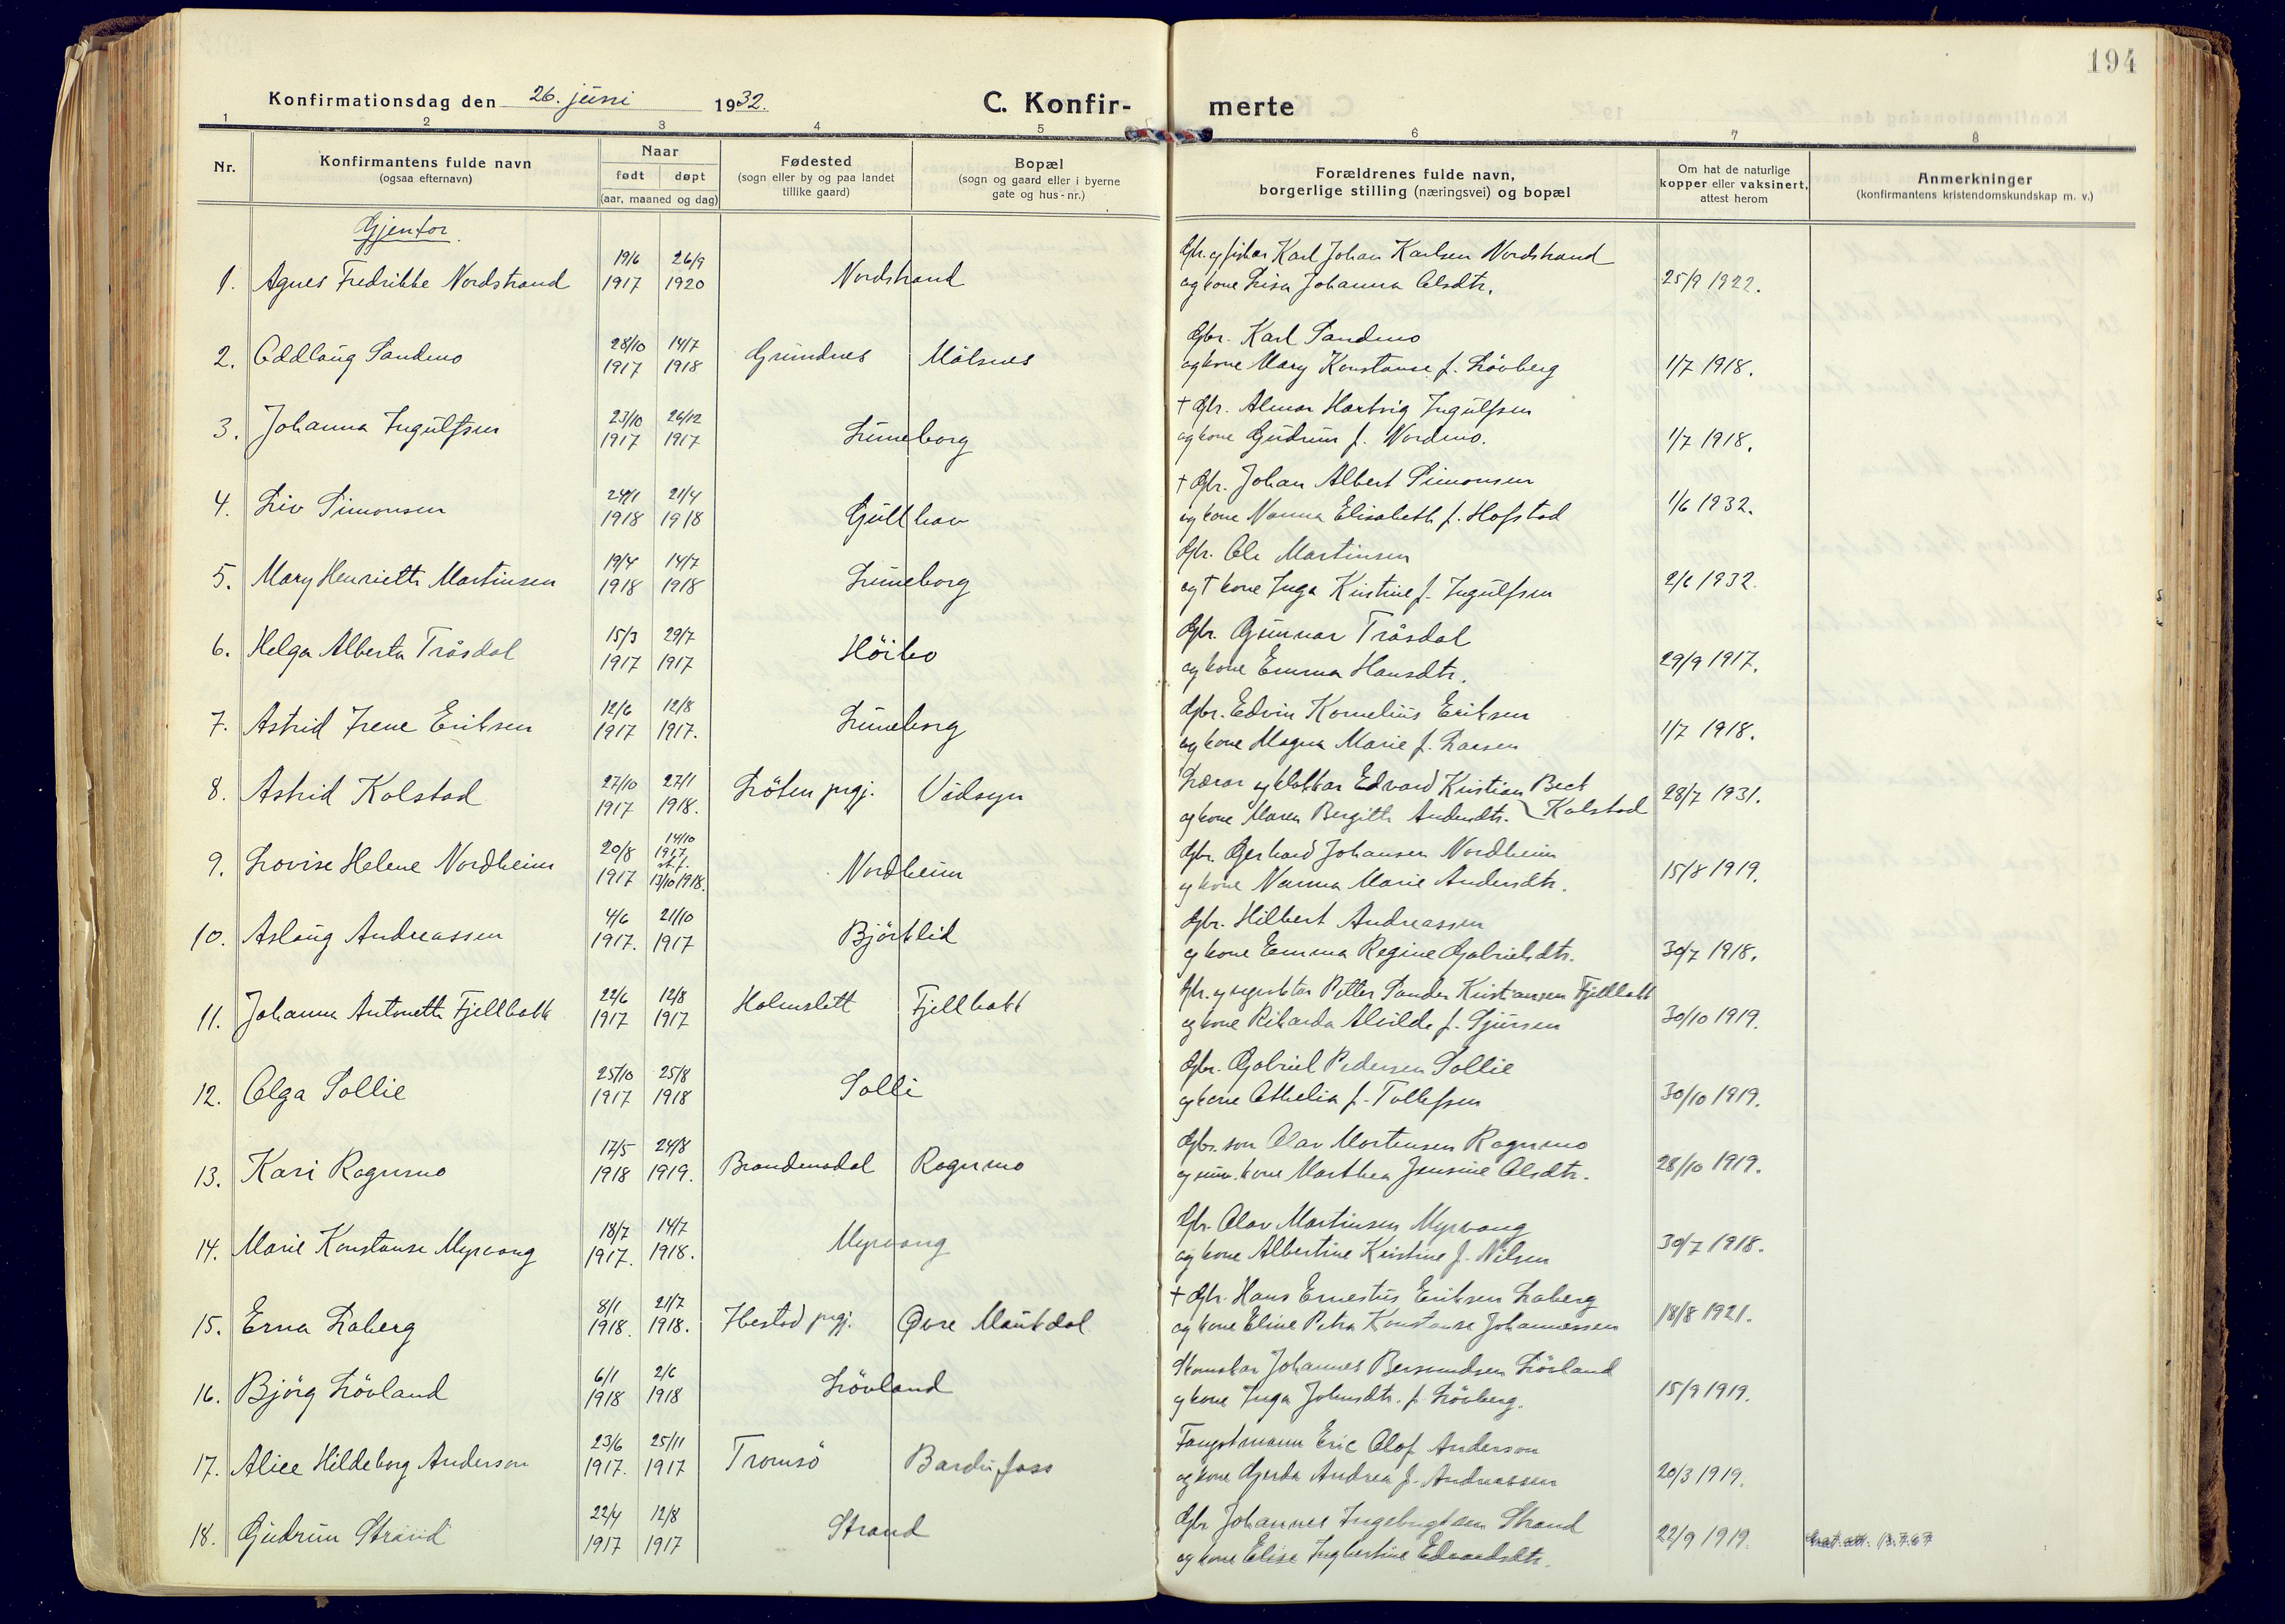 194
Konfirmationsdag den 26. juni 1932.
C. Konfirmerte
1 2 3 4 5 6 7 8
Nr.
Konfirmantens fulde navn
(ogsaa efternavn)
Naar
født døpt
(aar, maaned og dag)
Fødested
(sogn eller by og paa landet
tillike gaard)
Bopæl
(sogn og gaard eller i byerne
gate og hus-nr.)
Forældrenes fulde navn,
borgerlige stilling (næringsvei) og bopæl
Om hat de naturlige
kopper eller vaksinert,
attest herom
Anmerkninger
(konfirmantens kristendomskundskap m. v.)
Gjentor.
19/6 26/9 Gbr. og fisker Karl Johan Karlsen Nordstrand
1. Agnes Fredrikke Nordstrand 1917 1920 Nordstrand og kone Lisa Johanna Olsdtr. 25/9 1922.
28/10 14/7 Gbr. Karl Sandmo
2. Oddlaug Sandmo 1917 1918 Grundnes Målsnes og kone Mary Konstanse f. Lövberg 1/7 1918.
23/10 26/12 + Gbr. Almar Hartvig Ingulfsen
3. Johanna Ingulfsen 1917 1917 Luneborg og kone Gudrun f. Nordmo. 1/7 1918.
24/1 21/4 + Gbr. Johan Albert Simonsen
4. Liv Simonsen 1918 1918 Gullhav og kone Nanna Elisabeth f. Hofstad 1/6 1932.
19/4 14/7 Gbr. Ole Martinsen
5. Mary Henriette Martinsen 1918 1918 Luneborg og + kone Inga Kristine f. Ingulfsen 2/6 1932.
15/3 29/7 Gbr. Gunnar Tråsdal
6. Helga Alberta Tråsdal 1917 1917 Höibo og kone Emma Hansdtr. 29/9 1917.
12/6 12/8 Gbr. Edvin Kornelius Eriksen
7. Astrid Irene Eriksen 1917 1917. Luneborg og kone Magna Marie f. Larsen 1/7 1918.
27/10 27/1 Lærar og klokkar Edvard Kristian Beck
8. Astrid Kolstad 1917 1918. Löten prgj. Vidsyn og kone Maren Bergitte Andersdtr. Kolstad 28/7 1931.
20/8 14/10 1917 st.f. Gbr. Gerhard Johansen Nordheim
9. Lovise Helene Nordheim 1917 13/10 1918. Nordheim og kone Nanna Marie Andersdtr. 15/8 1919.
4/6 21/10 Gbr. Hilbert Andreassen
10. Aslaug Andreassen 1917. 1917 Björklid og kone Emma Regine Gabrielsdtr. 30/7 1918.
22/6 12/8 Gbr. og Petter Sander Kristiansen Fjellbakk
11. Johanna Antonette Fjellbakk 1917 1917 Holmslett Fjellbakk og kone Rikarda Alvilde f. Sjursen 30/10 1919.
25/10 25/8 Gbr. Gabriel Pedersen Sollie
12. Olga Sollie 1917 1918 Solli og kone Othelia f. Tollefsen 30/10 1919.
17/5 24/8 Gbr. son Olav Mortensen Rognmo
13. Kari Rognmo 1918 1919. Brandmodal Rognmo og kone Marthea Jensine Olsdtr. 28/10 1919.
18/7 14/7 Gbr. Olav Martinsen Myrvang
14. Marie Konstanse Myrvang 1917. 1918. Myrvang og kone Albertine Kristine f. Nilsen 30/7 1918.
8/1 21/7 + Gbr. Hans Ernestus Eriksen Laberg
15. Erna Laberg 1918. 1918. Ibestad prgj. Övre Maukdal og kone Eline Petra Konstanse Johannessen 18/8 1921.
6/1 2/6 Skomakar Johannes Bersvendsen Lövland
16. Björg Lövland 1918 1918 Lövland og kone Inga Johnsdtr. f. Lövberg. 15/9 1919.
23/6 25/11 Fangstmann Eric Olof Anderson
17. Alice Hildeborg Anderson 1917. 1917 Tromsö Bardufoss og kone Gerda Andrea f. Andreassen 20/3 1919.
22/4 12/8 Gbr Johannes Ingebrigtsen Strand
18. Gudrun Strand 1917 1917 Strand og kone Elise Ingbertine Edvardsdtr. 22/9 1919. att. 13.7.67